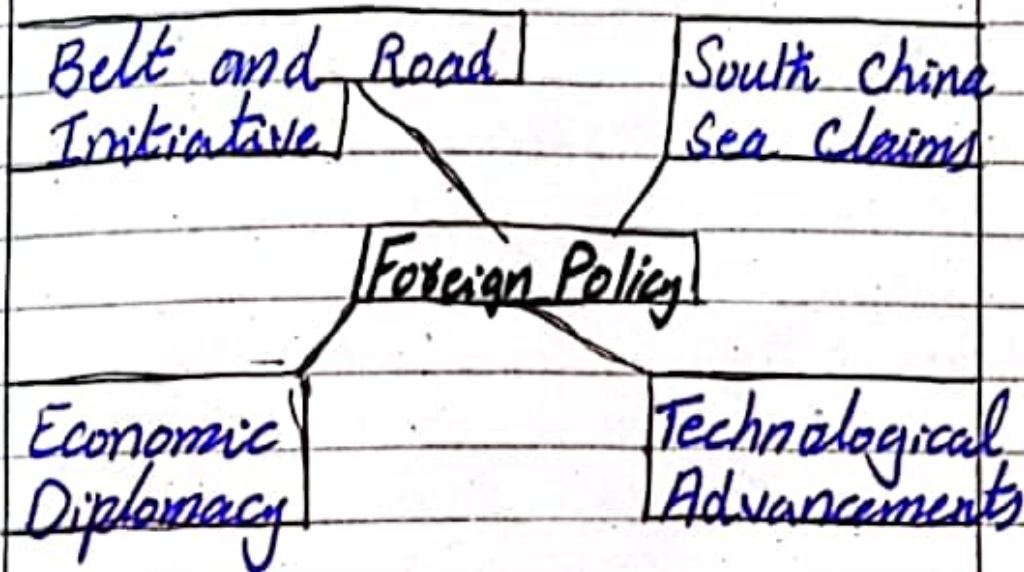 Belt and Road
Initiative
South China
Sea Claims
Foreign Policy
Economic
Diplomacy
Technological
Advancements